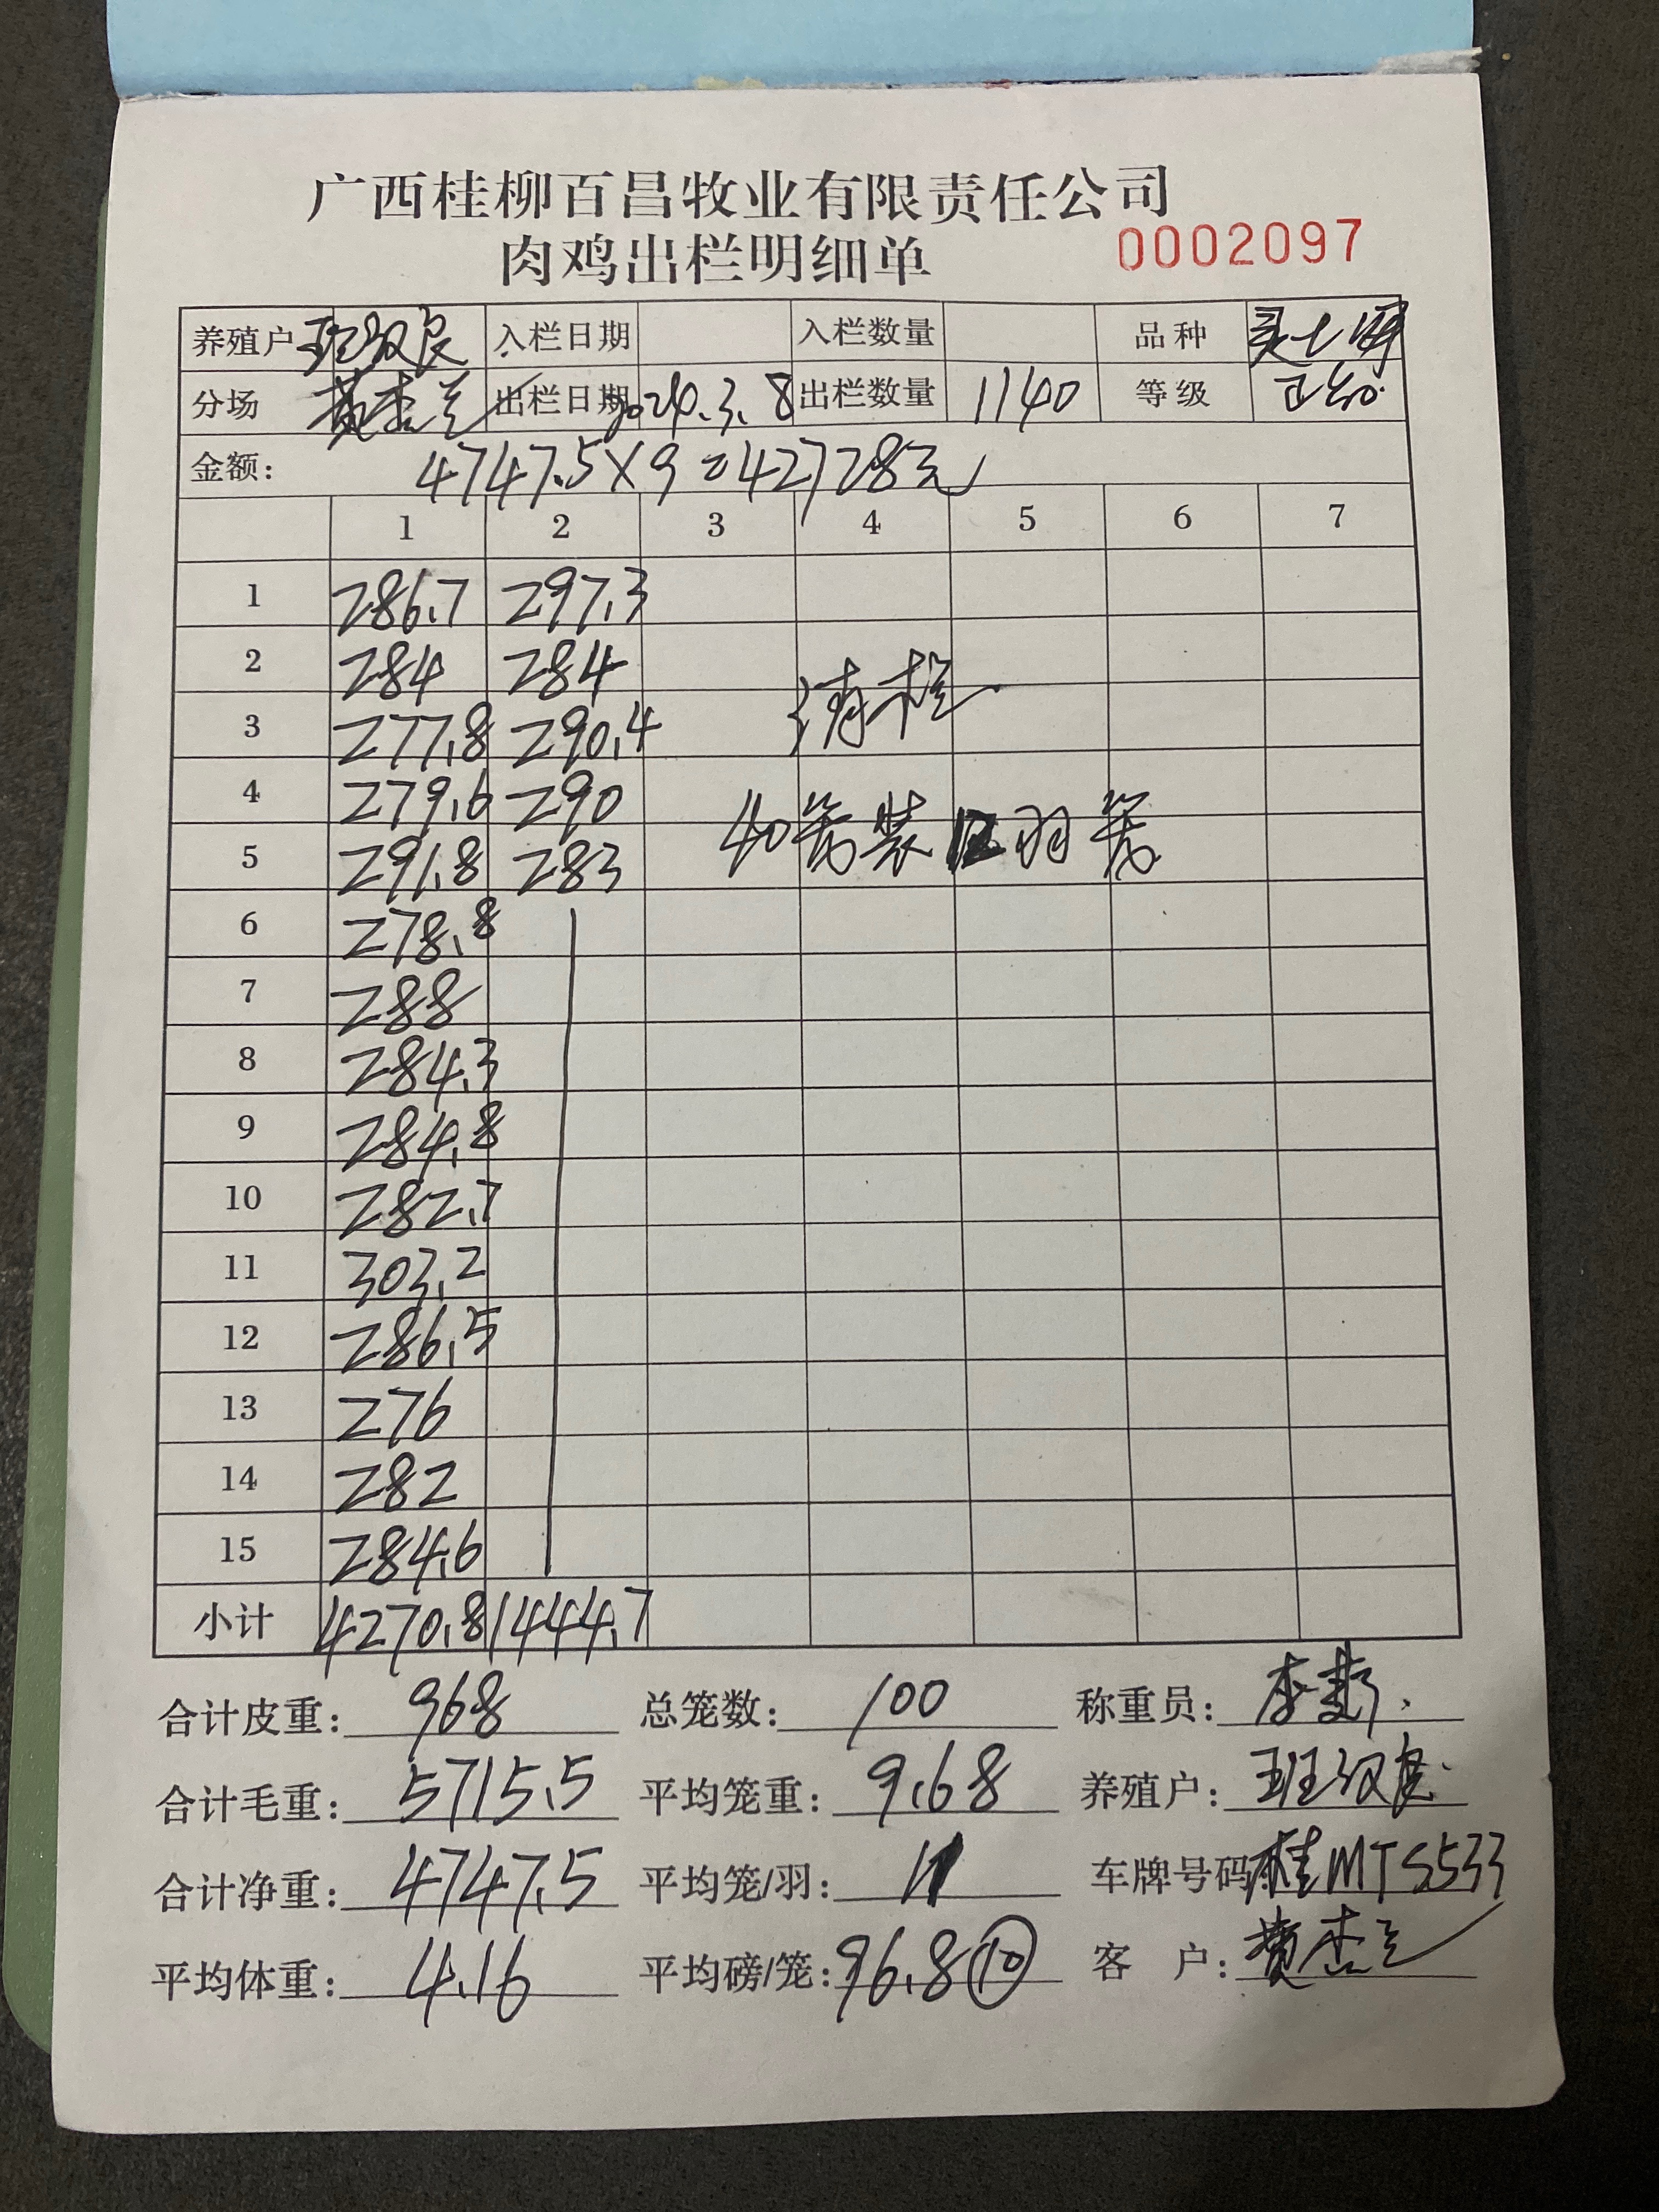 广西桂柳百昌牧业有限责任公司
肉鸡出栏明细单 0002097
养殖户 班汉良 入栏日期 入栏数量 品种
分场 黄杰兰 出栏日期 2024.3.8 出栏数量 1140 等级 正品
金额: 4747.5×9=42728元
1 2 3 4 5 6 7
1 286.7 297.3
2 284 284
3 277.8 290.4 清栏
4 279.6 290
5 291.8 283 40笼装12羽笼
6 278.8
7 288
8 284.3
9 284.8
10 282.7
11 303.2
12 286.5
13 276
14 282
15 284.6
小计 4270.8 1444.7
合计皮重: 968 总笼数: 100 称重员: 李
合计毛重: 5715.5 平均笼重: 9.68 养殖户: 班汉良
合计净重: 4747.5 平均笼/羽: 11 车牌号码: 桂MTS533
平均体重: 4.16 平均磅/笼: 96.8⑩ 客 户: 黄杰兰